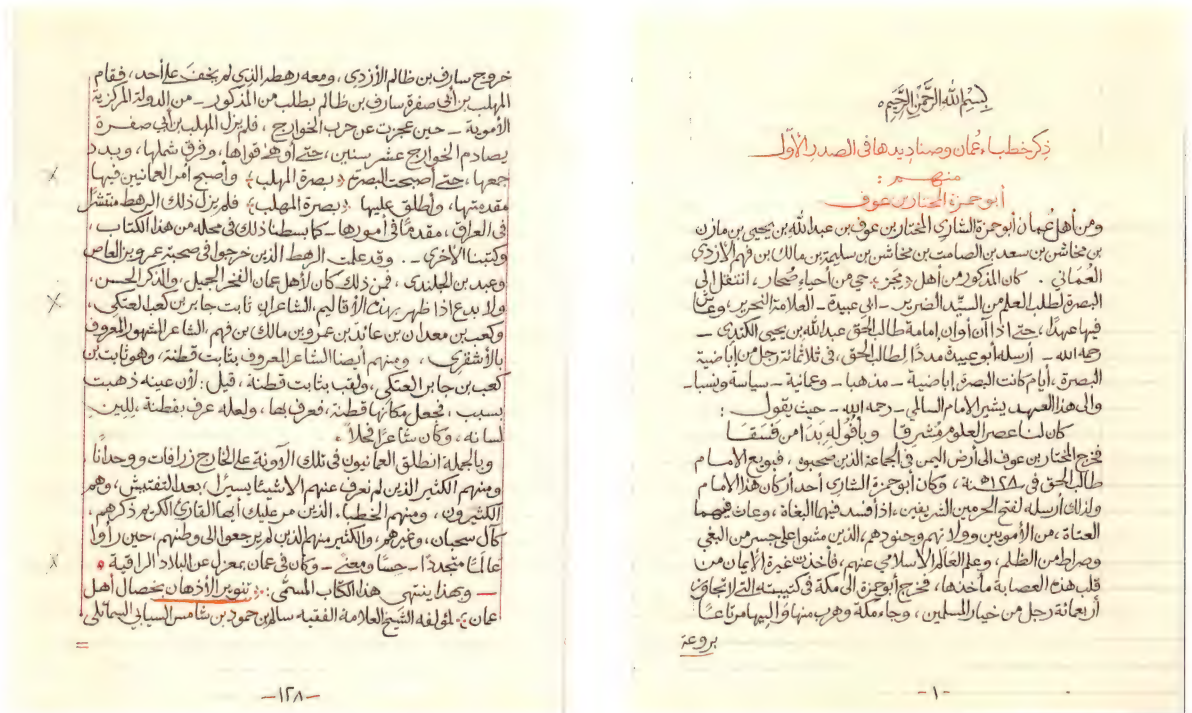 بِسْمِ اللّهِ الرَّحْمَنِ الرَّحِيمِ
ذكر خطباء عُمان وصناديدها فى الصدر الأوّل
منهم :
أبو حمزة المختار بن عوف
ومن أهل عُمان أبو حمزة الشارى المختار بن عوف بن عبد الله بن يحيى بن مازن
بن مخاشن بن سعد بن الصامت بن مخاشن بن سليمة بن مالك بن فهم الأزدي
العُمانى . كان المذكور من أهل « مجز » حى من أحياء صُحار ، انتقل إلى
البصرة لطلب العلم من السيّد الضرير – ابى عبيدة – العلامة النحرير ، وعاش
فيها عهدًا ، حتى اذا آن أوان إمامة طالب الحق عبد الله بن يحيى الكندى –
رحمه الله – أرسله أبو عبيدة مددًا لطالب الحق ، فى ثلاثمائة رجل من إباضية
البصرة ، أيام كانت البصرة إباضية – مذهبا – وعمانية – سياسة ونسبا –
والى هذا العهد يشير الامام السالمي – رحمه الله – حيث يقول :
كان لنا عصر العلوم مُشرقا وبأفوله بَدَا من فَسَقَا
فخرج المختار بن عوف الى أرض اليمن فى الجماعة الذين صحبوه ، فبويع الامام
طالب الحق فى ١٢٨ﻫ سنة ، وكان أبو حمزة الشارى أحد أركان هذا الامام
ولذلك أرسله لفتح الحرمين الشريفين ، اذا فسد فيهما البغاة ، وعاث فيهما
العتاة ، من الأمويين وولاتهم وجنودهم ، الذين مشوا على جسر من البغي
وصراط من الظلم ، وعلم العالم الاسلامي عنهم ، فأخذت غيرة الإيمان من
قلب هذه العصابة مأخذها ، فخرج أبو حمزة الى مكة فى كتيبته التى لا تجاوز
أربعمائة رجل من خيار المسلمين ، وجاء مكة وهرب منها واليها مرتاعًا
بروعة
-١-
خروج سارف بن ظالم الأزدى ، ومعه رهطه الذى لم يخف على أحد ، فقام
المهلب بن أبى صفرة سارف بن ظالم بطلب من المذكور – من الدولة المركزية
الأموية – حين عجزت عن حرب الخوارج ، فلم يزل المهلب بن أبي صفرة
يصادم الخوارج عشر سنين ، حتى أوهى قواها ، وفرق شملها ، وبدد
جمعها ، حتى أصبحت البصرة « بصرة المهلب » وأصبح أمر العمانيين فيها
مقدمتها ، وأطلق عليها « بصرة المهلب » فلم يزل ذلك الرهط منتشرًا
فى العراق ، مقدمًا فى أمورها – كما بسطنا ذلك فى محله من هذا الكتاب ،
وكتبنا الأخرى – . وقد علمت الرهط الذين خرجوا فى صحبة عمرو بن العاص
وعبد بن الجلندى ، فمن ذلك كان لأهل عمان الفخر الجميل ، والذكر الحسن ،
ولا بدع اذا ظهر بهذه الأقاليم ، الشاعران ثابت جابر بن كعب العتكى ،
وكعب بن معدان بن عائذ بن عمرو بن مالك بن فهم ، الشاعر المشهور المعروف
بالأشقرى ، ومنهم أيضا الشاعر المعروف بثابت قطنة ، وهو ثابت بن
كعب بن جابر العتكى ، ولقب بثابت قطنة ، قيل : لأن عينه ذهبت
بسبب ، فجعل مكانها قطنة ، فعرف بها ، ولعله عرف بقطنة ، للين
لسانه ، وكان شاعرًا فحلاً .
وبالجملة انطلق العمانيون فى تلك الآونة على الخارج زرافات ووحدانا
ومنهم الكثير الذين لم نعرف عنهم الا شيئا يسيرًا ، بعد التفتيش ، وهم
الكثيرون ، ومنهم الخطباء ، الذين مر عليك أيها القارئ الكريم ذكرهم ،
كآل سحبان ، وغيرهم ، والكثير منهم الذين لم يرجعوا الى وطنهم ، حين رأوا
عالمًا متجددًا – حسًا ومعنى – وكان فى عمان بمعزل عن البلاد الراقية .
– وبهذا ينتهى هذا الكتاب المسمّى : « تنوير الأذهان بخصال أهل
عمان » لمؤلفه الشيخ العلامة الفقيه سالم بن حمود بن شامس السيابي السمائلى
=
-١٢٨-